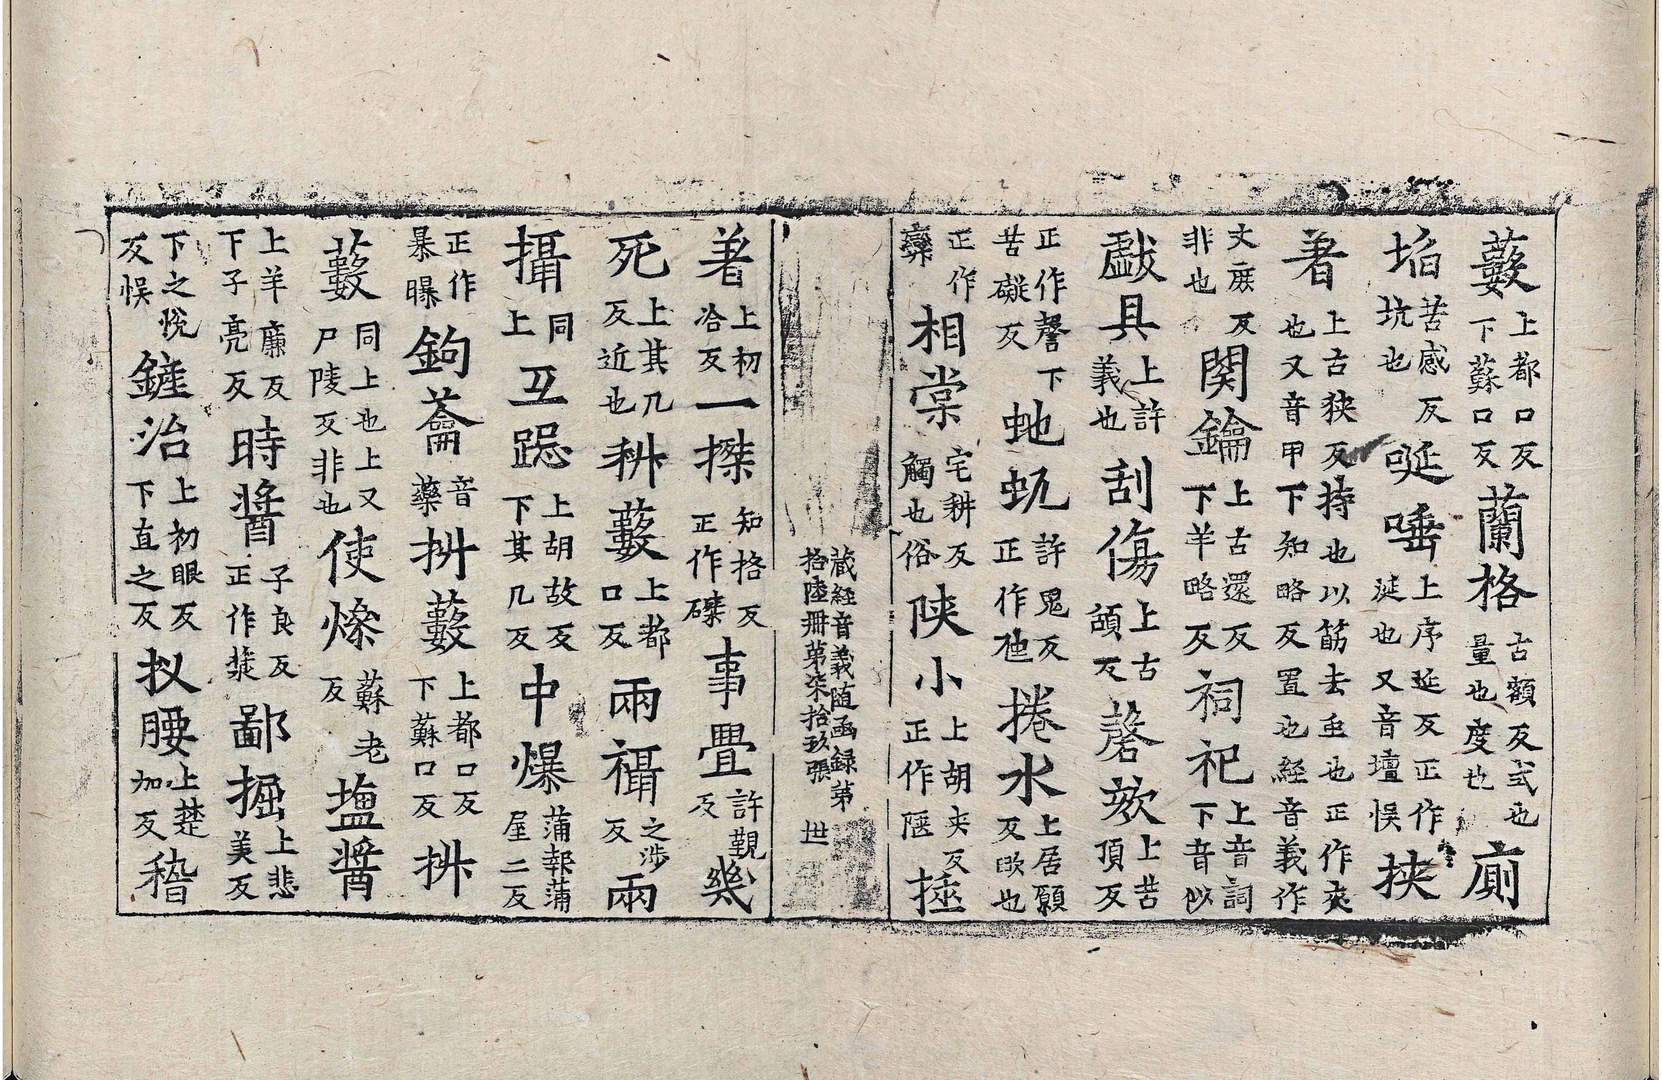 藪上都口反下蘇口反蘭格古額反式也量也度也廁
埳苦感反坑也唌唾上序延反正作涎也又音壇悮挾
著上古狹反持也以筯去𮔉也正作夾也又音甲下知略反置也經音義作
文庶反非也関鑰上古還反下羊略反祠祀上音詞下音似
戱具上許義也刮傷上古頟反磬欬上苦頂反
正作謦下苦礙反虵虺許鬼反正作虺捲水上居願反又㰸也
正作𣠽相棠宅耕反觸也俗陜小上胡夾反正作陿㨖
藏經音義随函録第拾陸冊第柒拾玖張 世
著上初洽反一搩知挌反正作磔事舋許覲反幾
死上其几反近也枡藪上都口反兩襵之涉反兩
攝同上𭁵跽上胡故反下其几反中爆蒲報蒲屋二反
正作暴曝鉤蘥音藥抍藪上都口反下蘇口反抍
藪同上也上又尸陵反非也使燥蘇老反塩醬
上羊廉反下子亮反時醬子良反正作漿鄙掘上悲美反
下之悅反悮鏟治上初眼反下直之反扠腰上楚加反稽